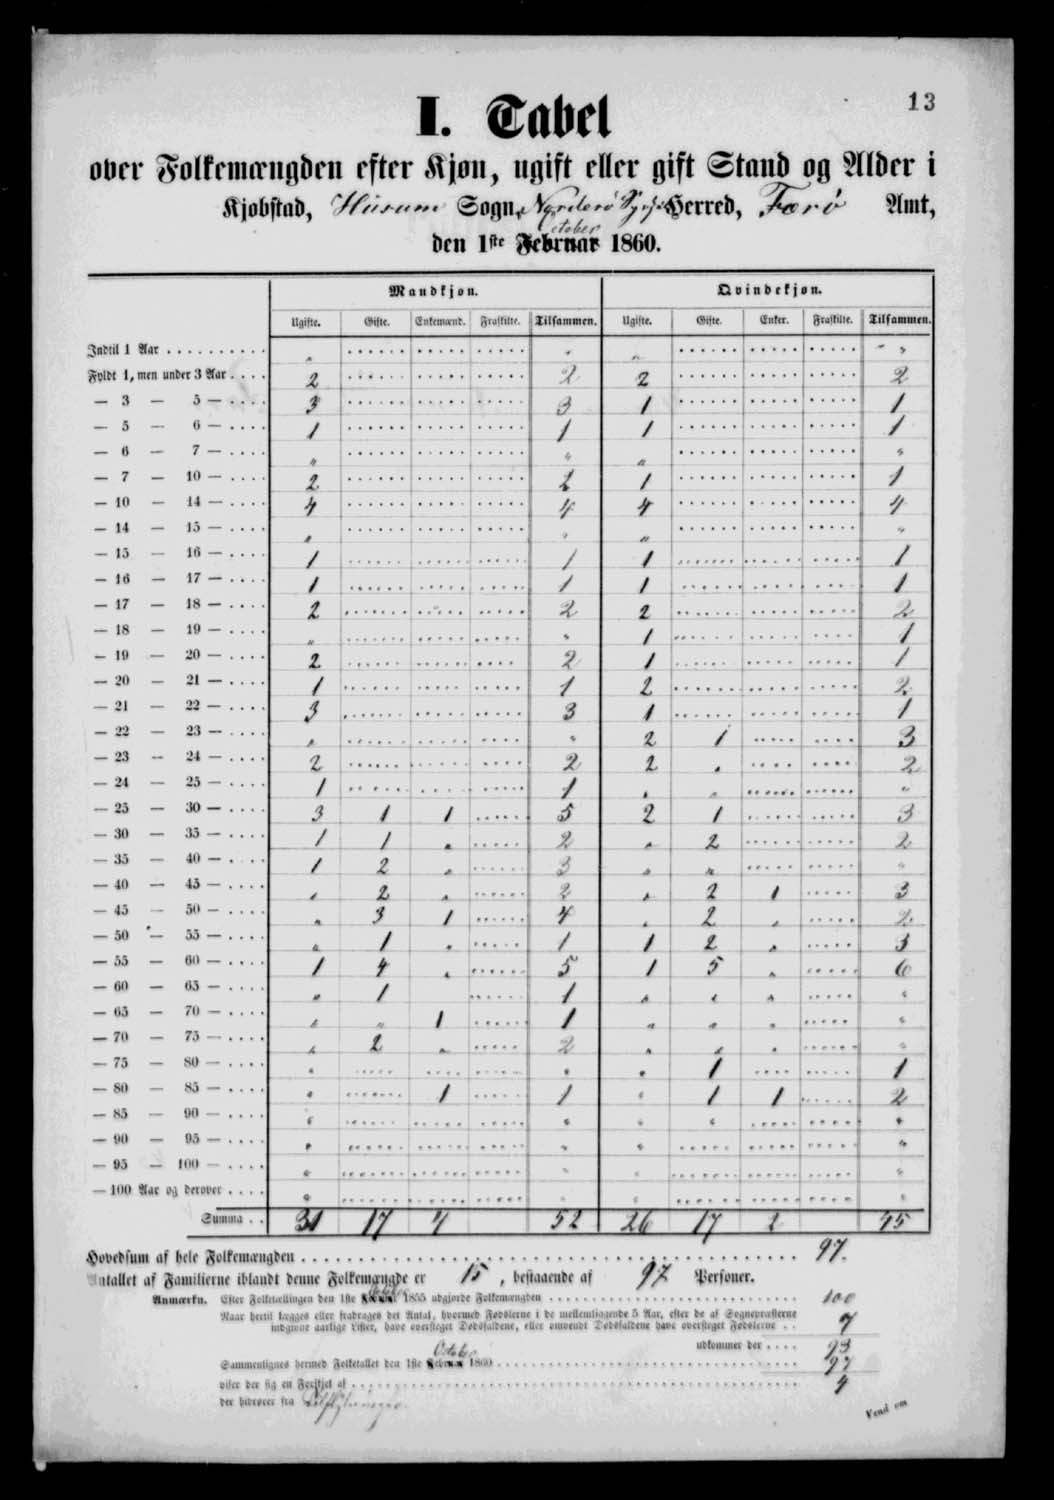 13
I. Tabel
over Folkemængden efter Kjøn, ugift eller gift Stand og Alder i
Kjøbstad, Húsum Sogn, Norderø Herred, Færø Amt,
October
den 1ste Februar 1860.
Mandkjøn. Qvindekjøn.
Ugifte. Gifte. Enkemænd. Fraskilte. Tilsammen. Ugifte. Gifte. Enker. Fraskilte. Tilsammen.
Indtil 1 Aar . . . . . . . . . . „ „ „ „
Fyldt 1, men under 3 Aar . . . . 2 2 2 2
— 3 — 5 — . . . . 3 3 1 1
— 5 — 6 — . . . . 1 1 1 1
— 6 — 7 — . . . . „ „ „ „
— 7 — 10 — . . . . 2 2 1 1
— 10 — 14 — . . . . 4 4 4 4
— 14 — 15 — . . . . „ „ „ „
— 15 — 16 — . . . . 1 1 1 1
— 16 — 17 — . . . . 1 1 1 1
— 17 — 18 — . . . . 2 2 2 2
— 18 — 19 — . . . . „ „ 1 1
— 19 — 20 — . . . . 2 2 1 1
— 20 — 21 — . . . . 1 1 2 2
— 21 — 22 — . . . . 3 3 1 1
— 22 — 23 — . . . . „ „ 2 1 3
— 23 — 24 — . . . . 2 2 2 „ 2
— 24 — 25 — . . . . 1 1 „ „ „
— 25 — 30 — . . . . 3 1 1 5 2 1 3
— 30 — 35 — . . . . 1 1 „ 2 „ 2 2
— 35 — 40 — . . . . 1 2 „ 3 „ „ „
— 40 — 45 — . . . . „ 2 „ 2 „ 2 1 3
— 45 — 50 — . . . . „ 3 1 4 „ 2 „ 2
— 50 — 55 — . . . . „ 1 „ 1 1 2 „ 3
— 55 — 60 — . . . . 1 4 „ 5 1 5 „ 6
— 60 — 65 — . . . . „ 1 1 „ „ „ „
— 65 — 70 — . . . . „ „ 1 1 „ „ „ „
— 70 — 75 — . . . . „ 2 „ 2 „ „ „ „
— 75 — 80 — . . . . „ „ „ 1 1
— 80 — 85 — . . . . „ 1 1 „ 1 1 2
— 85 — 90 — . . . . „ „ „ „ „
— 90 — 95 — . . . . „ „ „ „
— 95 — 100 — . . . . „ „ „ „
— 100 Aar og derover . . . . „ „ „ „
Summa . . 31 17 4 52 26 17 2 45
Hovedsum af hele Folkemængden . . . 97.
Antallet af Familierne iblandt denne Folkemængde er 15, bestaaende af 97 Personer.
October
Anmærkn. Efter Folketællingen den 1ste Februar 1855 udgjorde Folkemængden . . . 100
Naar hertil lægges eller fradrages det Antal, hvormed Fødslerne i de mellemliggende 5 Aar, efter de af Sognepræsterne
indgivne aarlige Lister, have oversteget Dødsfaldene, eller omvendt Dødsfaldene have oversteget Fødslerne . . 7
udkommer der . . . . 93
October
Sammenlignes hermed Folketallet den 1ste Februar 1860 . . . 97
viser der sig en Forskjel af . . . 4
der hidrører fra
Vend om